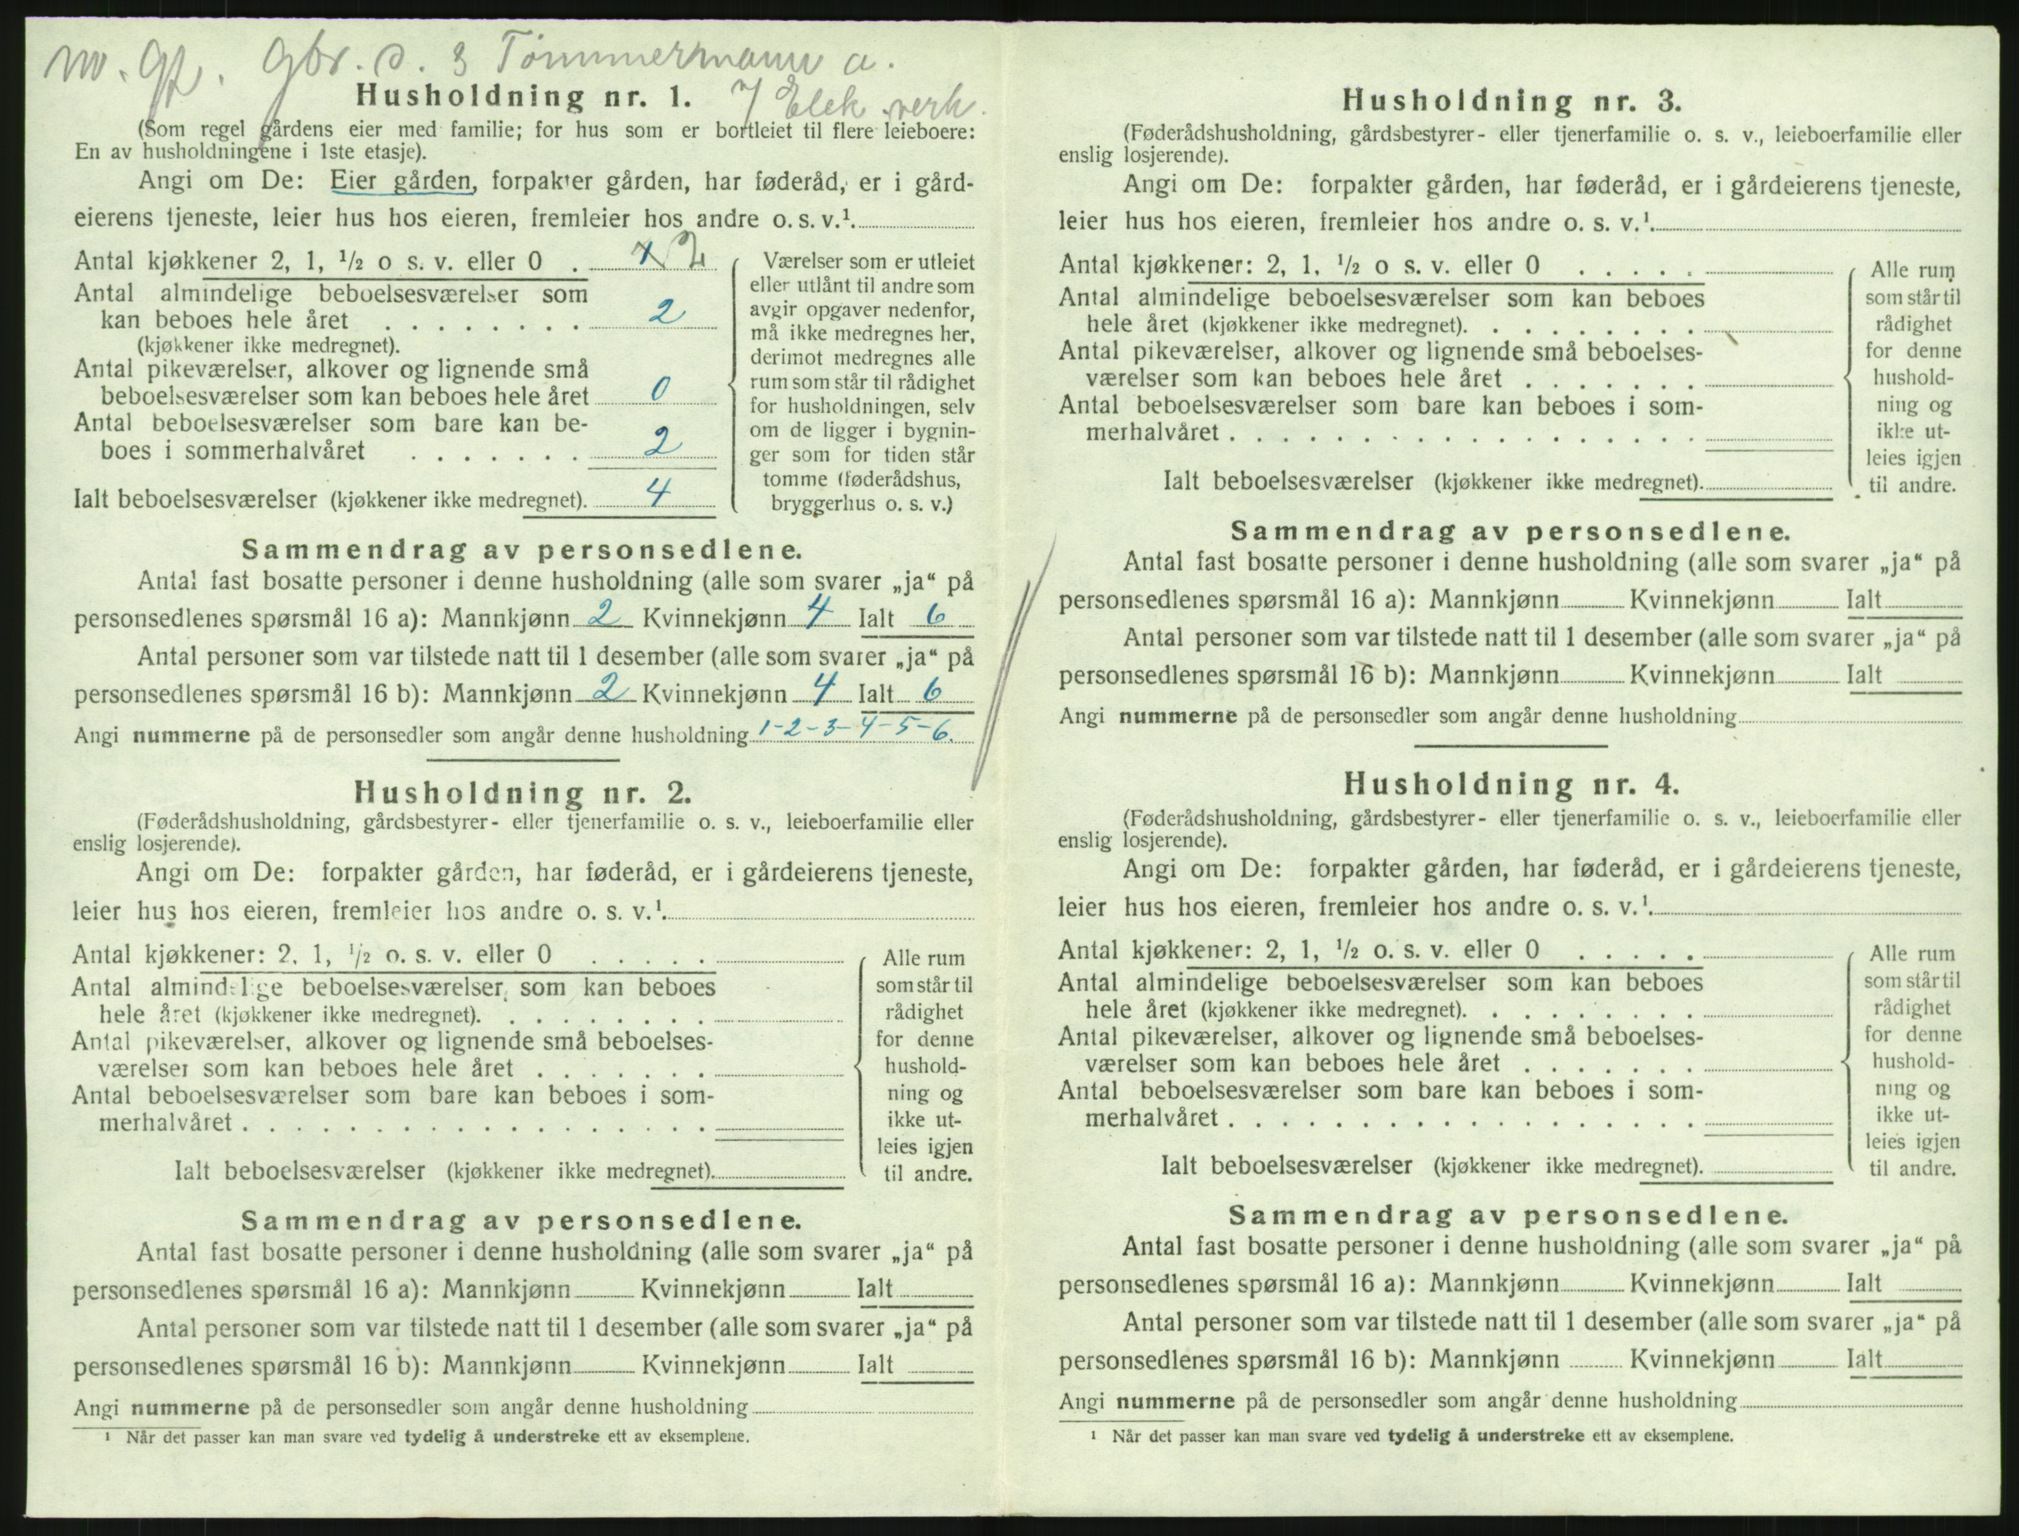 m. gp. gbr. s. 3 Tømmermann a.
7 Elek verk.
Husholdning nr. 1.
(Som regel gårdens eier med familie; for hus som er bortleiet til flere leieboere:
En av husholdningene i 1ste etasje).
Angi om De: Eier gården, forpakter gården, har føderåd, er i gård-
eierens tjeneste, leier hus hos eieren, fremleier hos andre o. s. v.¹.
Antal kjøkkener 2, 1, ½ o s. v. eller 0 . 1 2
Antal almindelige beboelsesværelser som
kan beboes hele året . . . . . . . . 2
(kjøkkener ikke medregnet).
Antal pikeværelser, alkover og lignende små
beboelsesværelser som kan beboes hele året 0
Antal beboelsesværelser som bare kan be-
boes i sommerhalvåret . . . . . . . 2
Ialt beboelsesværelser (kjøkkener ikke medregnet). 4
Værelser som er utleiet
eller utlånt til andre som
avgir opgaver nedenfor,
må ikke medregnes her,
derimot medregnes alle
rum som står til rådighet
for husholdningen, selv
om de ligger i bygnin-
ger som for tiden står
tomme (føderådshus,
bryggerhus o. s. v.)
Sammendrag av personsedlene.
Antal fast bosatte personer i denne husholdning (alle som svarer „ja“ på
personsedlenes spørsmål 16 a): Mannkjønn 2 Kvinnekjønn 4 Ialt 6
Antal personer som var tilstede natt til 1 desember (alle som svarer „ja“ på
personsedlenes spørsmål 16 b): Mannkjønn 2 Kvinnekjønn 4 Ialt 6
Angi nummerne på de personsedler som angår denne husholdning 1-2-3-4-5-6.
Husholdning nr. 2.
(Føderådshusholdning, gårdsbestyrer- eller tjenerfamilie o. s. v., leieboerfamilie eller
enslig losjerende).
Angi om De: forpakter gården, har føderåd, er i gårdeierens tjeneste,
leier hus hos eieren, fremleier hos andre o. s. v.¹.
Antal kjøkkener: 2, 1, ½ o. s. v. eller 0 . . . . .
Antal almindelige beboelsesværelser som kan beboes
hele året (kjøkkener ikke medregnet). . . . . . . . .
Antal pikeværelser, alkover og lignende små beboelses-
værelser som kan beboes hele året . . . . . . .
Antal beboelsesværelser som bare kan beboes i som-
merhalvåret . . . . . . . . . . . . . . . . . .
Ialt beboelsesværelser (kjøkkener ikke medregnet).
Alle rum
som står til
rådighet
for denne
hushold-
ning og
ikke ut-
leies igjen
til andre.
Sammendrag av personsedlene.
Antal fast bosatte personer i denne husholdning (alle som svarer „ja“ på
personsedlenes spørsmål 16 a): Mannkjønn Kvinnekjønn Ialt
Antal personer som var tilstede natt til 1 desember (alle som svarer „ja“ på
personsedlenes spørsmål 16 b): Mannkjønn Kvinnekjønn Ialt
Angi nummerne på de personsedler som angår denne husholdning
¹ Når det passer kan man svare ved tydelig å understreke ett av eksemplene.
Husholdning nr. 3.
(Føderådshusholdning, gårdsbestyrer- eller tjenerfamilie o. s. v., leieboerfamilie eller
enslig losjerende).
Angi om De: forpakter gården, har føderåd, er i gårdeierens tjeneste,
leier hus hos eieren, fremleier hos andre o. s. v.¹.
Antal kjøkkener: 2, 1, ½ o s. v. eller 0 . . . . .
Antal almindelige beboelsesværelser som kan beboes
hele året (kjøkkener ikke medregnet). . . . . . . . .
Antal pikeværelser, alkover og lignende små beboelses-
værelser som kan beboes hele året . . . . . . .
Antal beboelsesværelser som bare kan beboes i som-
merhalvåret . . . . . . . . . . . . . . . . . .
Ialt beboelsesværelser (kjøkkener ikke medregnet).
Alle rum
som står til
rådighet
for denne
hushold-
ning og
ikke ut-
leies igjen
til andre.
Sammendrag av personsedlene.
Antal fast bosatte personer i denne husholdning (alle som svarer „ja“ på
personsedlenes spørsmål 16 a): Mannkjønn Kvinnekjønn Ialt
Antal personer som var tilstede natt til 1 desember (alle som svarer „ja“ på
personsedlenes spørsmål 16 b): Mannkjønn Kvinnekjønn Ialt
Angi nummerne på de personsedler som angår denne husholdning
Husholdning nr. 4.
(Føderådshusholdning, gårdsbestyrer- eller tjenerfamilie o. s. v., leieboerfamilie eller
enslig losjerende).
Angi om De: forpakter gården, har føderåd, er i gårdeierens tjeneste,
leier hus hos eieren, fremleier hos andre o. s. v.¹.
Antal kjøkkener: 2, 1, ½ o. s. v. eller 0 . . . . .
Antal almindelige beboelsesværelser som kan beboes
hele året (kjøkkener ikke medregnet). . . . . . . . .
Antal pikeværelser, alkover og lignende små beboelses-
værelser som kan beboes hele året . . . . . . .
Antal beboelsesværelser som bare kan beboes i som-
merhalvåret . . . . . . . . . . . . . . . . . .
Ialt beboelsesværelser (kjøkkener ikke medregnet).
Alle rum
som står til
rådighet
for denne
hushold-
ning og
ikke ut-
leies igjen
til andre.
Sammendrag av personsedlene.
Antal fast bosatte personer i denne husholdning (alle som svarer „ja“ på
personsedlenes spørsmål 16 a): Mannkjønn Kvinnekjønn Ialt
Antal personer som var tilstede natt til 1 desember (alle som svarer „ja“ på
personsedlenes spørsmål 16 b): Mannkjønn Kvinnekjønn Ialt
Angi nummerne på de personsedler som angår denne husholdning
¹ Når det passer kan man svare ved tydelig å understreke ett av eksemplene.